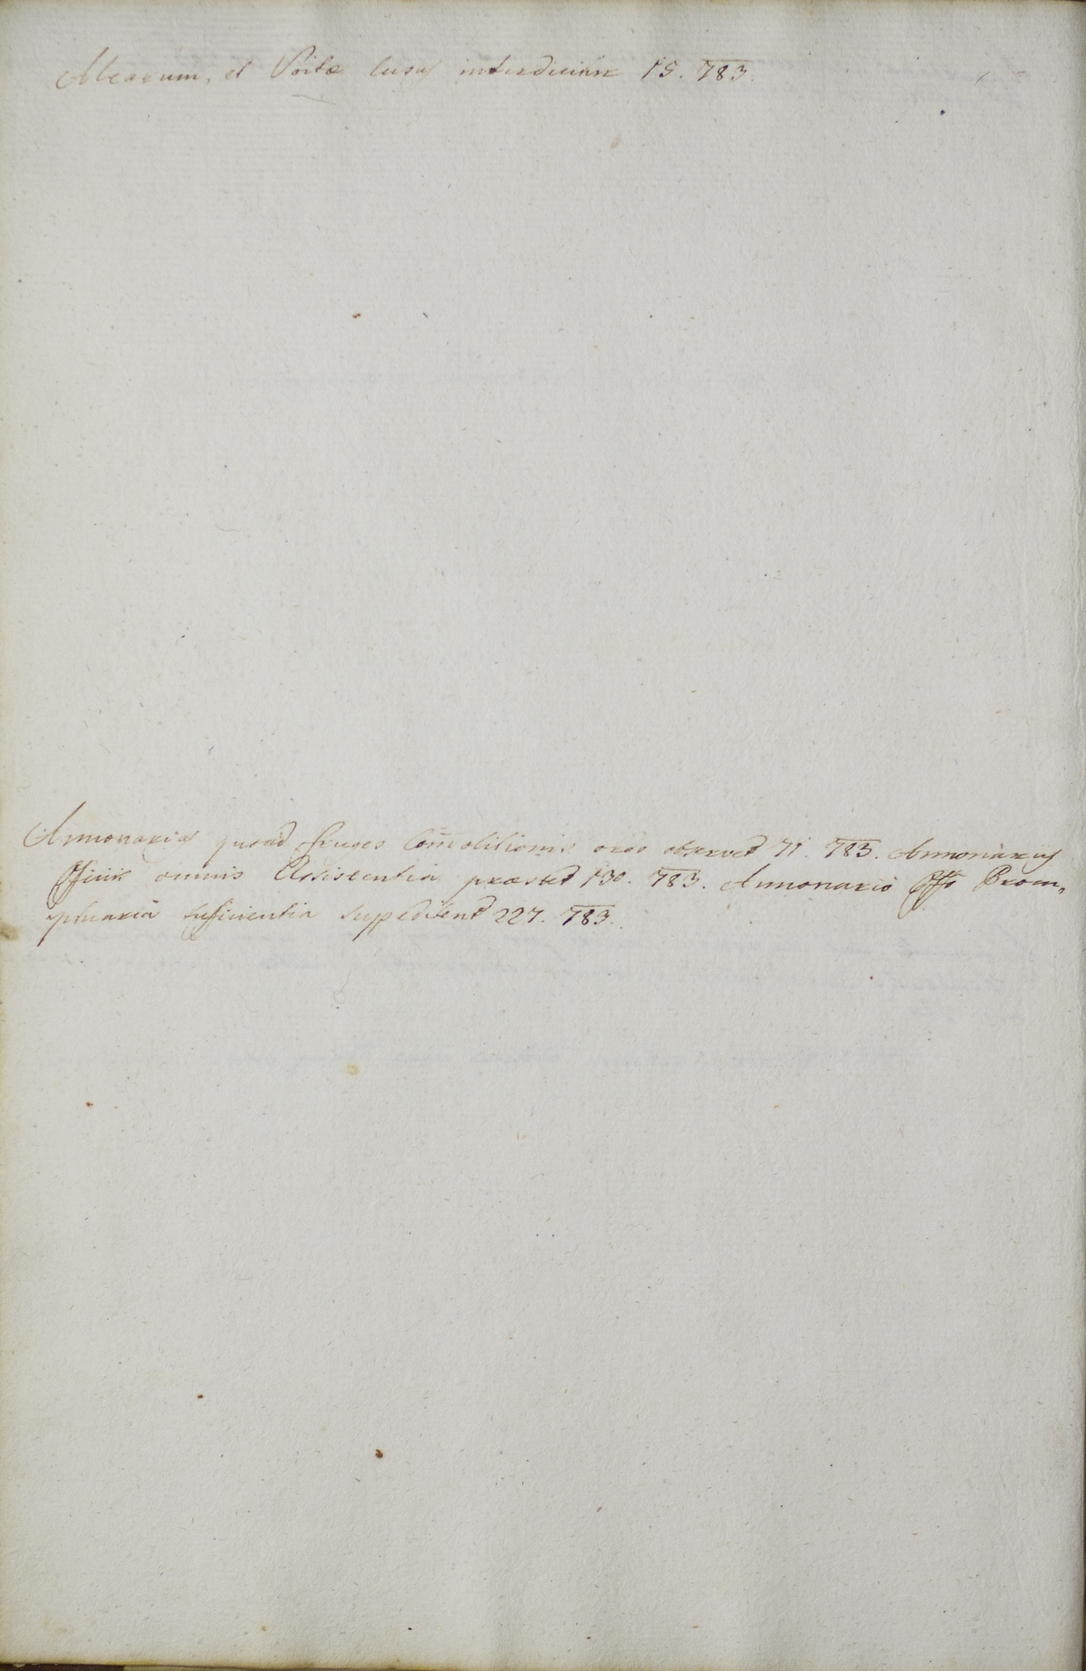 Alearum, et Sortæ lusus interdicitur 15. 783.
Annonariæ quoad fruges Com̄olitionis ordo observet 71. 783. Annonarus
Officiis omnis Assistentia præstet 130. 783. Annonario Offo Prom„
ptuaria sufficientia suppeditent 227. 783.